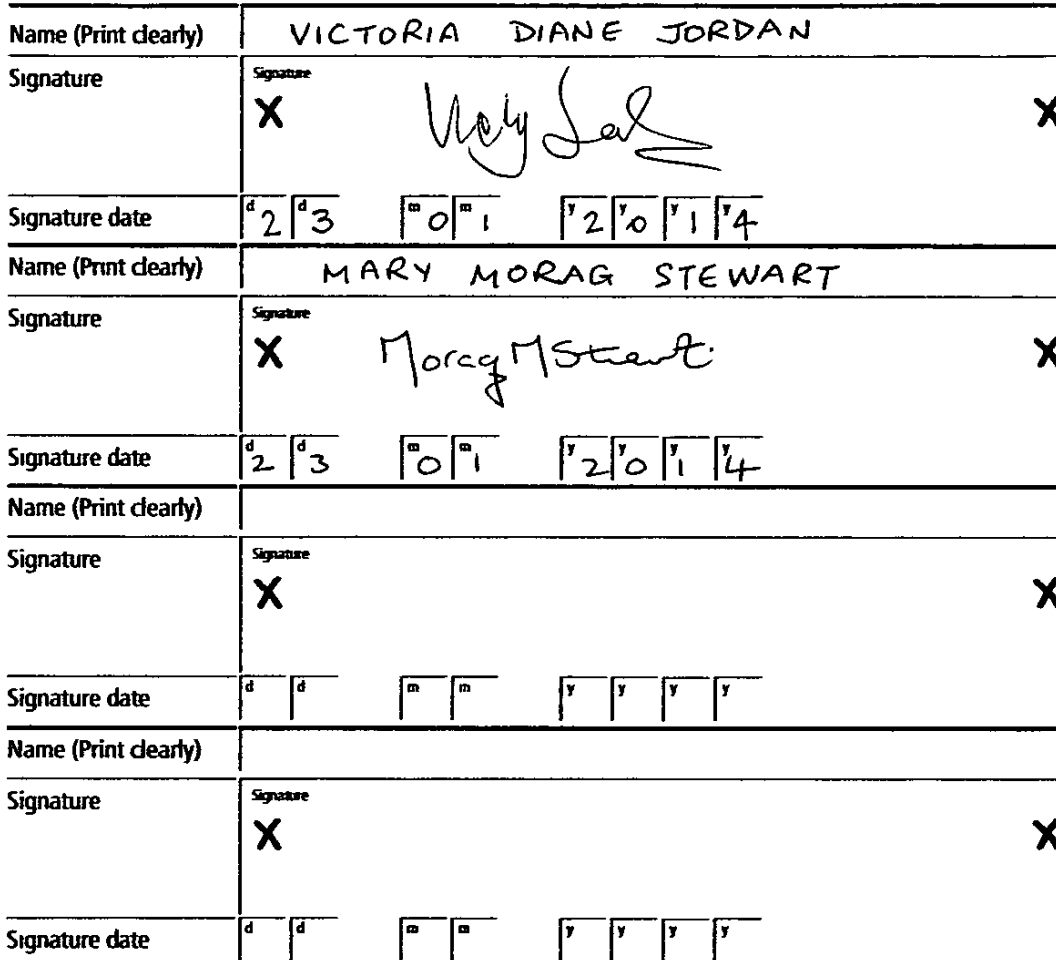 Name (Print clearly) VICTORIA DIANE JORDAN
Signature Signature
X X
Signature date d 2 d 3 m 0 m 1 y 2 y 0 y 1 y 4
Name (Print clearly) MARY MORAG STEWART
Signature Signature
X Morag M Stewart X
Signature date d 2 d 3 m 0 m 1 y 2 y 0 y 1 y 4
Name (Print clearly)
Signature Signature
X X
Signature date d d m m y y y y
Name (Print clearly)
Signature Signature
X X
Signature date d d m m y y y y